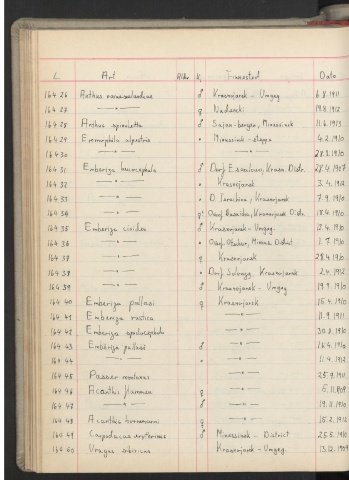 L. Art Alder K. Finnested Dato
164 26 Anthus ♂ Krasnojarsk - Umgeg 6.8.1911
164 27 —"— ♀ 19.8.1912
164 28 Anthus spinoletta ♂ Sajan-berge, Minussinsk 11.6.1913
164 29 Eremophila alpestris • Minussinsk - steppe 4.2.1910
164 30 —"— 1910
164 31 Emberiza ♂ Dorf Krasn. Distr. 28.4.1907
164 32 —"— • Krasnojarsk 3.4.1912
164 33 —"— • D. Krasnojarsk 7.9.1910
164 34 —"— Dorf Krasnojarsk Distr. 18.4.1910
164 35 Emberiza ♂ Krasnojarsk - Umgeg. 1910
164 36 —"— • Dorf Minus. District 1.7.1910
164 37 —"— ♀ Krasnojarsk 1910
164 38 —"— • Dorf Krasnojarsk 2.4.1912
164 39 —"— ♂ Krasnojarsk - Umgeg 19.9.1910
164 40 Emberiza pallasi ♀ Krasnojarsk 16.4.1910
164 41 Emberiza rustica —"— 11.9.1911
164 42 Emberiza —"— 30.8.1910
164 43 Emberiza pallasi ♂ —"— 16.4.1910
164 44 —"— • —"— 11.4.1912
164 45 Passer montanus —"— 25.9.1911
164 46 Acanthis flammea ♀ —"— 6.11.1909
164 47 —"— ♂ —"— 19.11.1910
164 48 Acanthis hornemanni ♀ —"— 15.2.1912
164 49 Carpodacus erythrinus ♂ Minussinsk - District 25.5.1910
164 50 Uragus sibiricus Krasnojarsk - Umgeg. 13.12.1909